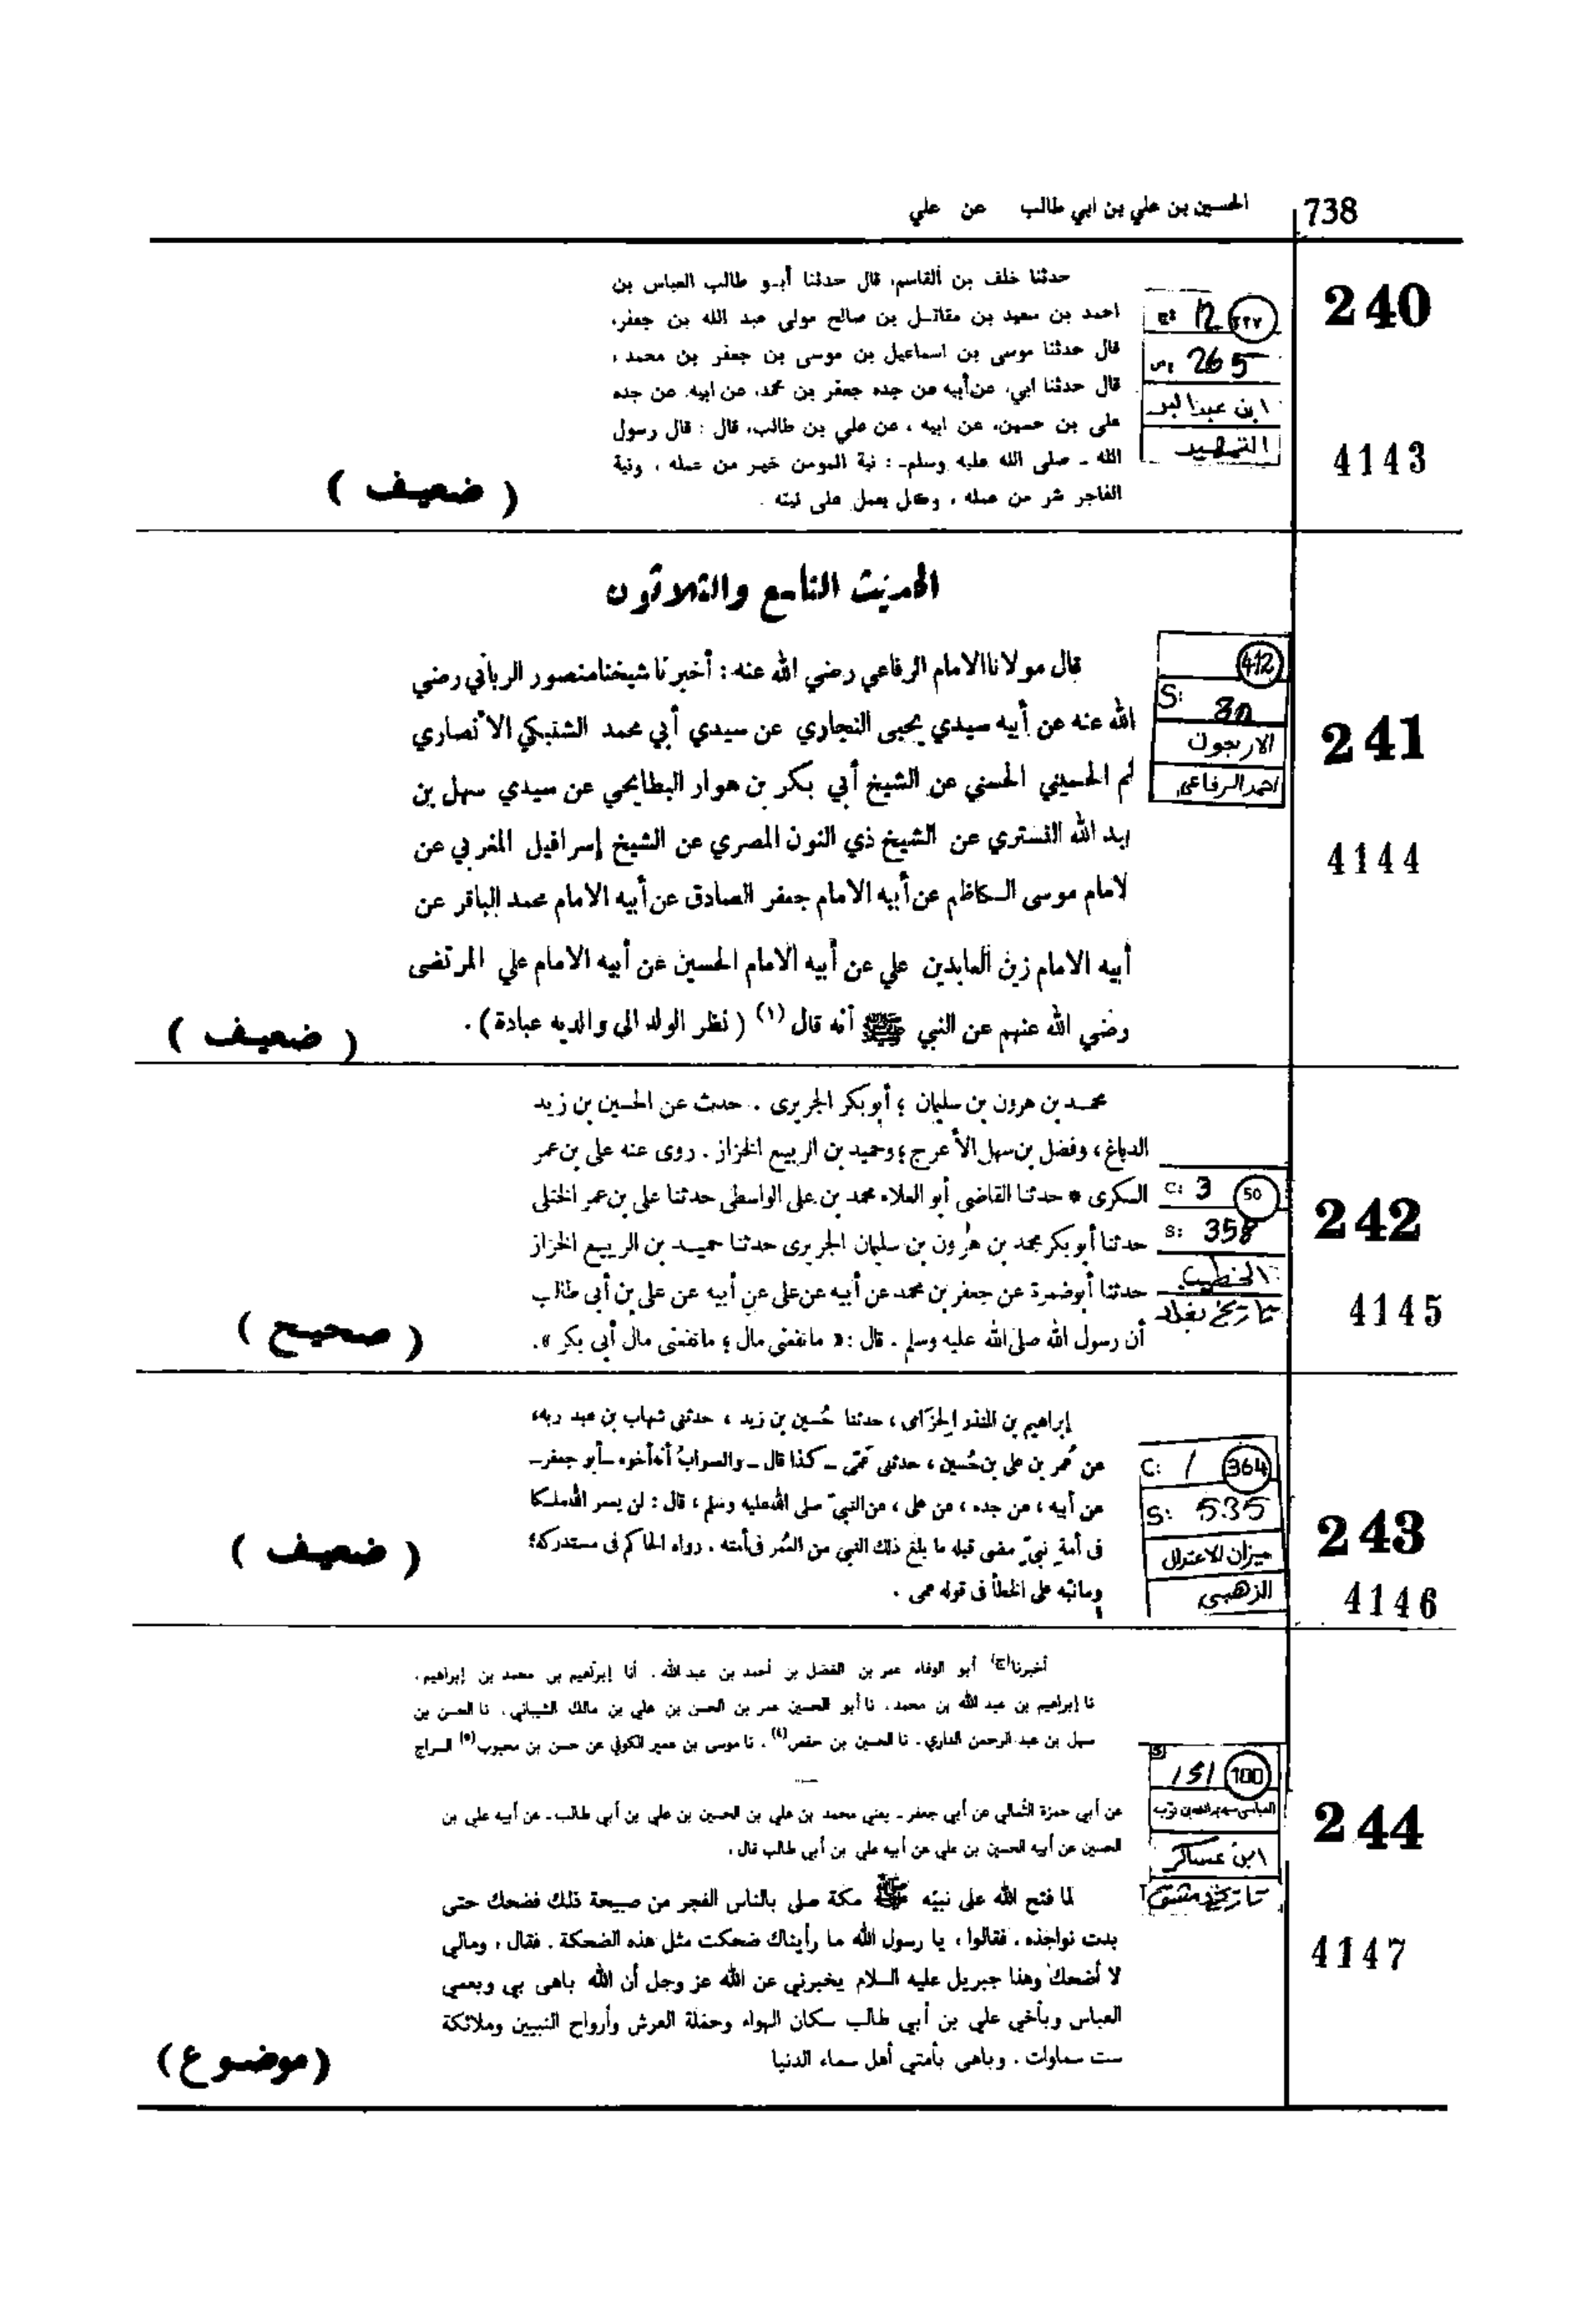 738
الحسين بن علي بن ابي طالب عن علي
240
حدثنا خلف بن القاسم، قال حدثنا أبو طالب العباس بن
احمد بن سعيد بن مقاتل بن صالح مولى عبد الله بن جعفر،
قال حدثنا موسى بن اسماعيل بن موسى بن جعفر بن محمد،
قال حدثنا ابي، عن أبيه عن جده جعفر بن محمد، عن ابيه، عن جده
على بن حسين، عن ابيه، عن علي بن طالب، قال: قال رسول
الله - صلى الله عليه وسلم -: نية المومن خير من عمله، ونية
الفاجر شر من عمله، وكل يعمل على نيته.
12 ٣٢٧
265
ابن عبد البر
التمهيد
4143
( ضعيف )
الحديث التاسع والثلاثون
241
قال مولانا الامام الرفاعي رضي الله عنه: أخبرنا شيخنا منصور الرباني رضي
الله عنه عن أبيه سيدي يحيى النجاري عن سيدي أبي محمد الشنبكي الأنصاري
م الحسيني الحسني عن الشيخ أبي بكر بن هوار البطايحي عن سيدي سهل بن
بد الله التستري عن الشيخ ذي النون المصري عن الشيخ إسرافيل المغربي عن
لامام موسى الكاظم عن أبيه الامام جعفر الصادق عن أبيه الامام محمد الباقر عن
أبيه الامام زين العابدين علي عن أبيه الامام الحسين عن أبيه الامام علي المرتضى
رضي الله عنهم عن النبي ﷺ أنه قال (١) ( نظر الولد الى والديه عبادة ).
412
S:
الاربعون
احمد الرفاعي
4144
( ضعيف )
242
محمد بن هرون بن سليمان؛ أبو بكر الجريرى. حدث عن الحسين بن زيد
الدباغ، وفضل بن سهل الأعرج؛ وحميد بن الربيع الخزاز. روى عنه على بن عمر
السكرى * حدثنا القاضى أبو العلاء محمد بن على الواسطى حدثنا على بن عمر الختلى
حدثنا أبو بكر محمد بن هرون بن سليمان الجريرى حدثنا حميد بن الربيع الخزاز
حدثنا أبو ضمرة عن جعفر بن محمد عن أبيه عن على عن أبيه عن على بن أبى طالب
أن رسول الله صلى الله عليه وسلم. قال: « ما نفعنى مال؛ ما نفعنى مال أبى بكر ».
C: 3 50
S: 358
الخطيب
تاريخ بغداد
4145
( صحيح )
243
إبراهيم بن المنذر الحزامى، حدثنا حُسين بن زيد، حدثنى شهاب بن عبد ربه،
عن عُمر بن على بن حُسين، حدثنى عَمّى - كذا قال - والصوابُ أنه أخوه - أبو جعفر -
عن أبيه، عن جده، عن على، عن النبىّ صلى الله عليه وسلم، قال: لن يعمر الله ملكا
فى أمة نبىّ مضى قبله ما بلغ ذلك النبى من العُمر فى أمته. رواه الحاكم فى مستدركه؛
وما نبّه على الخطأ فى قوله عمى.
C: 1 364
S: 535
ميزان الاعتدال
الزهبي
4146
( ضعيف )
244
أخبرنا(ج) أبو الوفاء عمر بن الفضل بن أحمد بن عبد الله، أنا إبراهيم بن محمد بن إبراهيم،
نا إبراهيم بن عبد الله بن محمد، نا أبو الحسين عمر بن الحسن بن علي بن مالك الشيباني، نا الحسن بن
سهل بن عبد الرحمن القاري، نا الحسين بن حفص(٤)، نا موسى بن عمير الكوفي عن حسن بن محبوب(٥) السراج
عن أبي حمزة الثمالي عن أبي جعفر - يعني محمد بن علي بن الحسين بن علي بن أبي طالب - عن أبيه علي بن
الحسين عن أبيه الحسين بن علي عن أبيه علي بن أبي طالب قال،
لما فتح الله على نبيّه ﷺ مكة صلى بالناس الفجر من صبيحة ذلك فضحك حتى
بدت نواجذه. فقالوا، يا رسول الله ما رأيناك ضحكت مثل هذه الضحكة. فقال، ومالي
لا أضحك وهذا جبريل عليه السلام يخبرني عن الله عز وجل أن الله باهى بي وبعمي
العباس وبأخي علي بن أبي طالب سكان الهواء وحملة العرش وأرواح النبيين وملائكة
ست سماوات. وباهى بأمتي أهل سماء الدنيا
151 100
ابن عساكر
تاريخ دمشق
4147
(موضوع)